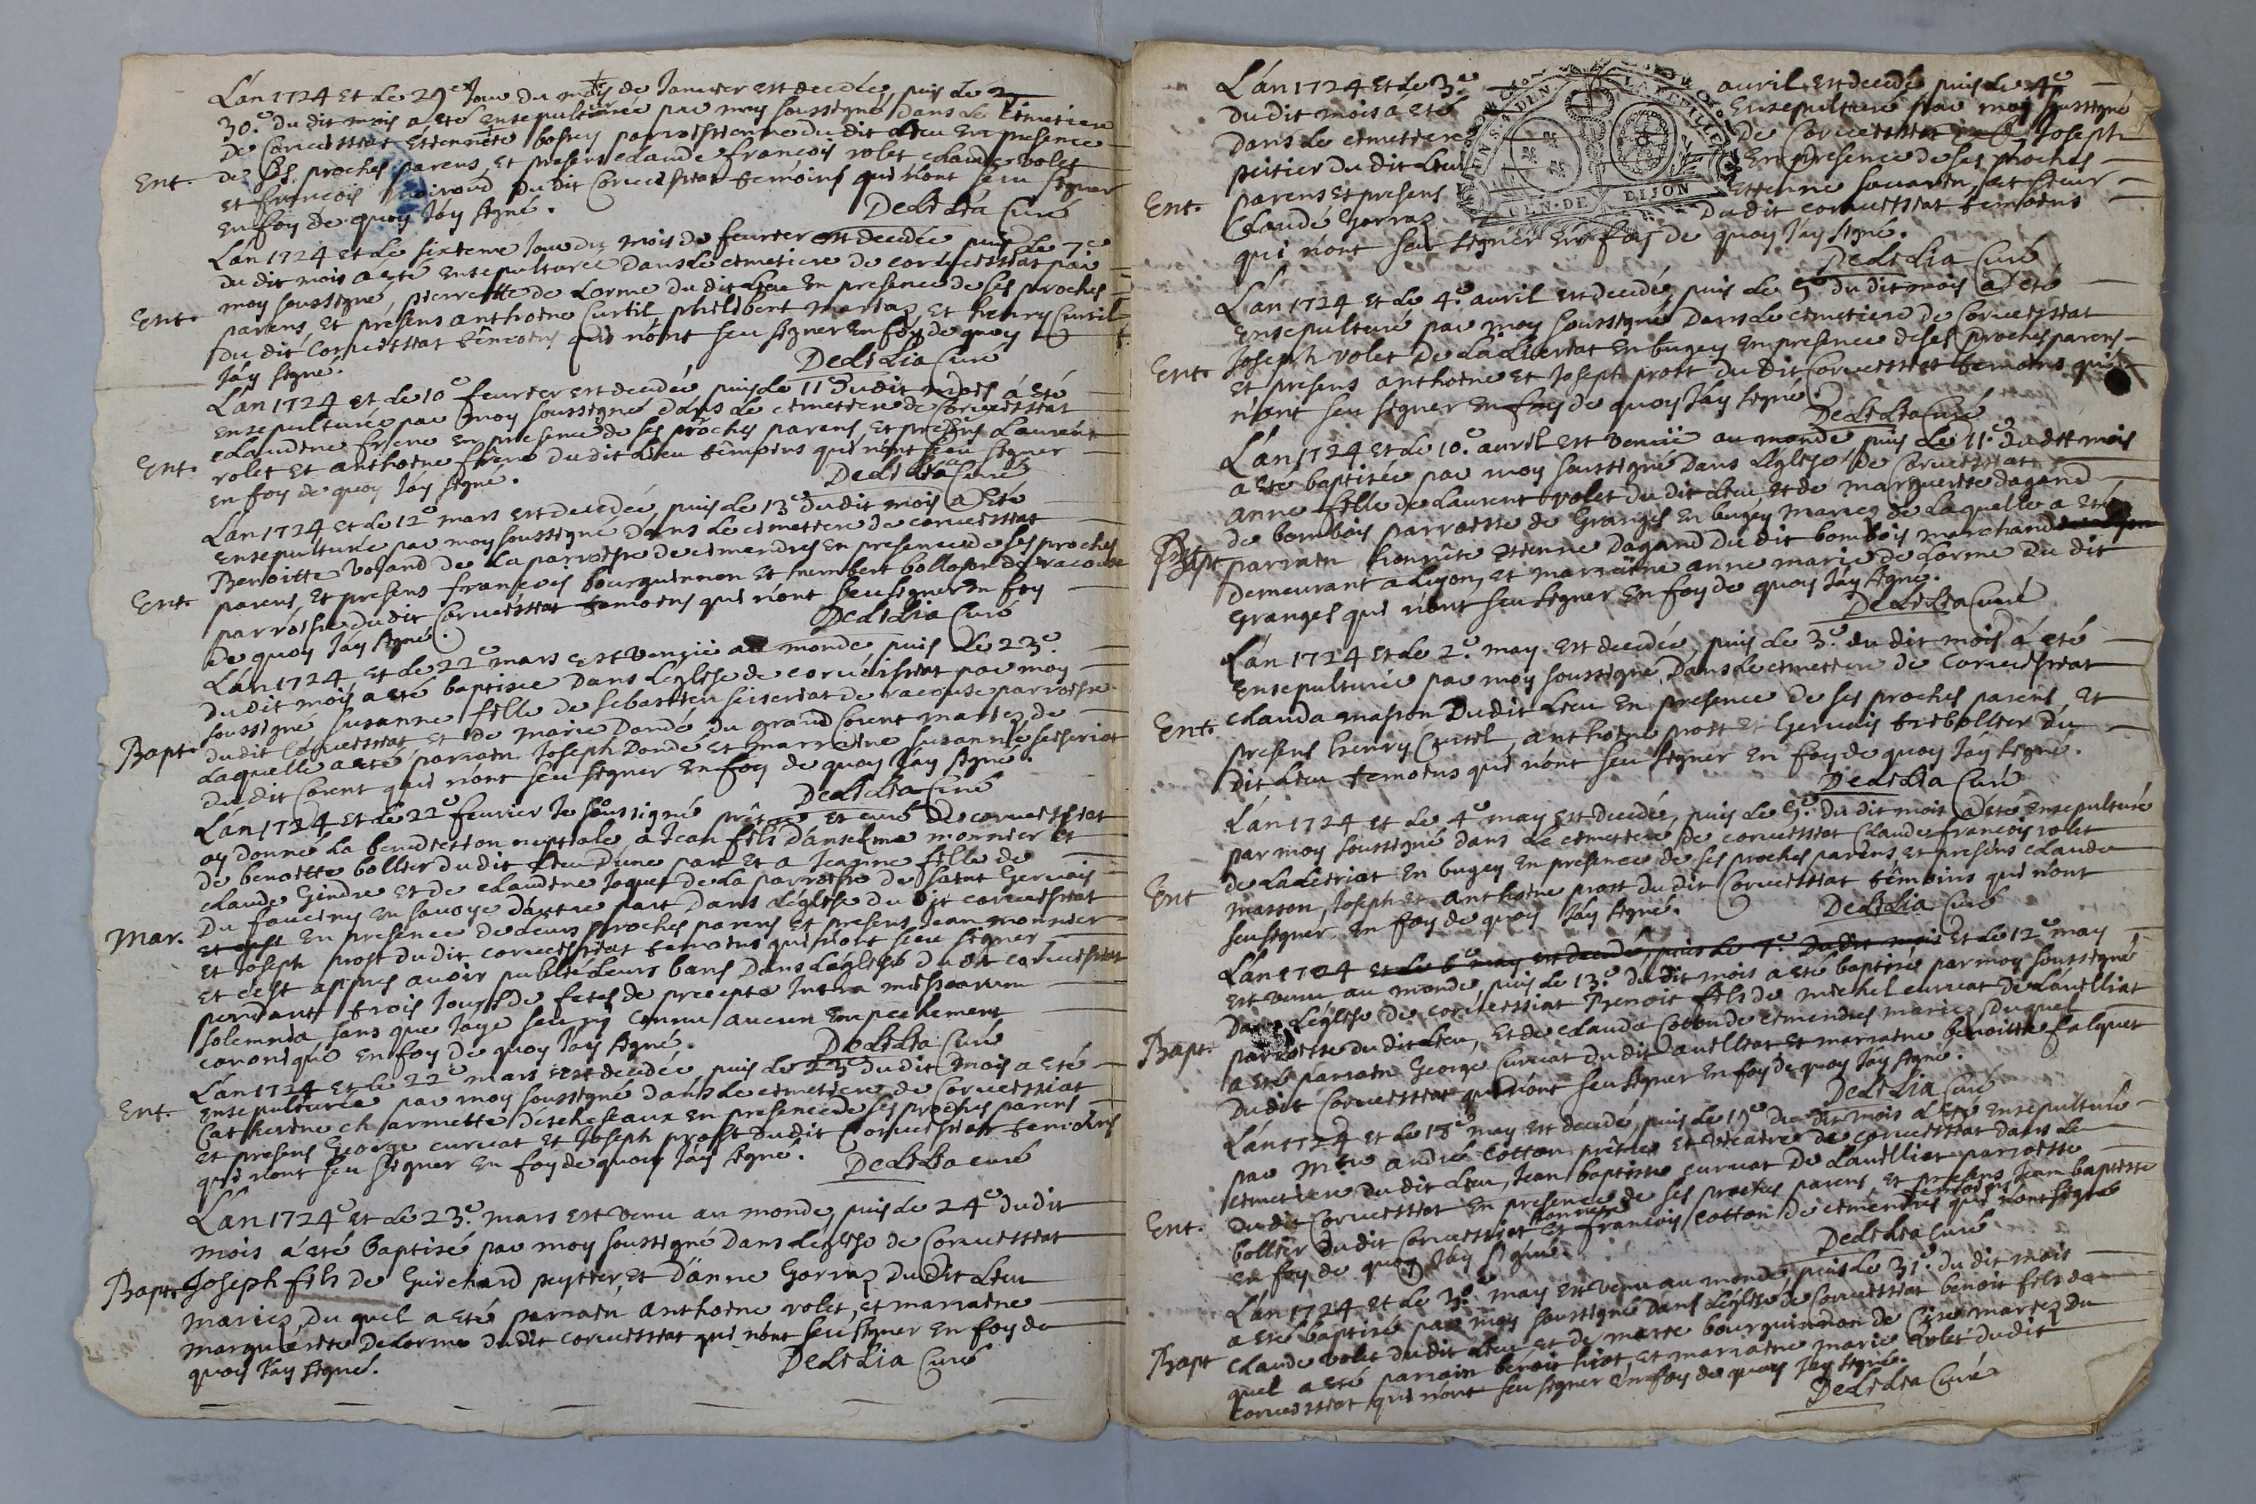 L'an 1724 et le 29e Jour du mois de Janvier est decedée, puis le
30.e du dit mois a eté ensepulturée par moy soussigné dans le cimetiere
de Corveissiat Etiennete bossey parroissienne du dit lieu en presence
de ses proches parens et presens claude francois volet claude volet
Ent. et francois du dit Corveissiat temoins qui n'ont sceu signer
en foy de quoy J'ay signé.
DeLiLia Curé
L'an 1724 et le sixieme Jour du mois de fevrier est decedée puis le 7e
du dit mois a eté ensepulturée dans le cimetiere de corveissiat par
Ent. moy soussigné, pierrette de Lorme du dit lieu en presence de ses proches
parens, et présens anthoine Curtil philibert et henry Curtil
du dit Corveissiat témoins qui n'ont seu signer en foy de quoy
J'ay signé.
DeLiLia Curé
L'an 1724 et le 10e fevrier est decedée puis le 11e du dit mois a eté
ensepulturée par moy soussigné dans le cimetiere de Corveissiat
claudine frere en presence de ses proches parens, et presens Laurent
Ent. volet et anthoine frere du dit lieu témoins qui n'ont seu signer
en foy de quoy J'ay signé.
DeLiLia Curé
L'an 1724 et le 12e mars est decedée, puis le 13e du dit mois a eté
ensepulturée par moy soussigné dans le cimetiere de corveissiat
Benoitte de la parroisse de cimandres en presence de ses proches
Ent. parens et presens francois bourguinnon et humbert bollofon de racouse
parroisse du dit Corveissiat temoins qui n'ont seu signer en foy
de quoy J'ay signé.
DeLiLia Curé
L'an 1724 et le 22e mars est venüe au monde puis le 23.e
du dit mois a eté baptisée dans l'église de corveissiat par moy
soussigné susanne fille de sebastien seiseriat de racouse parroisse
Bapt. du dit Corveissiat et de marie Dondé du grand Corent mariez de
laquelle a eté parrain Joseph Dondé et marreine susanne seiseriat
du dit Corent qui n'ont seu signer en foy de quoy J'ay signé.
DeLiLia Curé
L'an 1724 et le 22e fevrier Je soussigné prêtre et curé de corveissiat
ay donné la benediction nuptiale a Jean fils d'anselme monnier et
de benoitte bollier du dit lieu d'une part et a Jeanne fille de
claude Gindre et de claudine Joquet de la parroisse de saint Gervais
Mar. du faucigny en savoye d'autre part dans l'église du dit corveissiat
en presence de leurs proches parens et presens Jean monnier
et Joseph prost du dit corveissiat temoins qui n'ont seu signer
et c'est appres avoir publié leurs bans dans l'église du dit corveissiat
pendant trois Jours de fetes de precepte Intra missarum
solemnia, sans que J'aye seu ny connu aucun empechement
canonique en foy de quoy J'ay signé.
DeLiLia Curé
L'an 1724 et le 22e mars est decedée puis le 23e du dit mois a eté
Ent. ensepulturée par moy soussigné dans le cimetiere de Corveissiat
Catherine charmette d'escheseaux en presence de ses proches parens
et presens George curvat et Joseph prost du dit Corveissiat temoins
qui n'ont seu signer en foy de quoy J'ay signé.
DeLiLia curé
L'an 1724 et le 23.e mars est venu au monde, puis le 24e du dit
mois a eté baptisé par moy soussigné dans l'église de Corveissiat
Bapt. Joseph fils de Guichard peytier et d'anne Gorraz du dit lieu
mariez, du quel a eté parrain anthoine volet, et marraine
marguerite Delorme du dit corveissiat qui n'ont seu signer en foy de
quoy J'ay signé.
DeLiLia Curé
L'an 1724 et le 3.e avril est decedé puis le 4e
du dit mois a eté ensepulturé par moy soussigné
dans le cimetiere de Corveissiat Joseph
peitier du dit lieu en presence de ses proches
Ent. parens et presens Etienne
Claude Gorraz du dit corveissiat temoins
qui n'ont seu signer en foy de quoy J'ay signé.
GEN. DE DIJON
DeLiLia Curé
L'an 1724 et le 4.e avril est decedé, puis le 5e du dit mois a eté
ensepulturé par moy soussigné dans le cimetiere de Corveissiat
Ent. Joseph volet de en bugey en presence de ses proches parens
et presens anthoine et Joseph prost du dit Corveissiat temoins qui
n'ont seu signer en foy de quoy J'ay signé.
DeLiLia Curé
L'an 1724 et le 10.e avril est venüe au monde puis le 11.e du dit mois
a eté baptisée par moy soussigné dans l'église de Corveissiat
anne fille de Laurent volet du dit lieu, et de marguerite dagand
de bombois parroisse de Granges en bugey mariez de laquelle a eté
Bapt. parrain honnête etienne dagand du dit bombois marchand
demeurant a Lyon, et marraine anne marie de Lorme du dit
Granges qui n'ont seu signer en foy de quoy J'ay signé.
DeLiLia Curé
L'an 1724 et le 2.e may est decedée, puis le 3.e du dit mois a eté
ensepulturée par moy soussigné, dans le cimetiere de Corveissiat
Ent. clauda masson du dit lieu en presence de ses proches parens, et
presens henry Curtil, anthoine prost et Gervais tribollier du
dit lieu temoins qui n'ont seu signer en foy de quoy J'ay signé.
DeLiLia Curé
L'an 1724 et le 4e may est decedé, puis le 5.e du dit mois a eté ensepulturé
par moy soussigné dans le cimetiere de corveissiat Claude francois volet
de en bugey en presence de ses proches parens et presens claude
Ent masson, Joseph et anthoine prost du dit Corveissiat témoins qui n'ont
seu signer en foy de quoy J'ay signé.
DeLiLia Curé
L'an 1724 et le 6e may est decedé, puis le 7.e du dit mois et le 12e may
est venu au monde, puis le 13.e du dit mois a eté baptisé par moy soussigné
dans l'église de corveissiat Benoit fils de michel curvat de
Bapt. parroisse du dit lieu, et de clauda de cimandres mariez duquel
a eté parrain George curvat du dit et marraine benoitte falquet
du dit Corveissiat qui n'ont seu signer en foy de quoy J'ay signé.
DeLiLia Curé
L'an 1724 et le 18e may est decedé, puis le 19e du dit mois a eté ensepulturé
par mre. andré Cotton prêtre et vicaire de corveissiat dans le
cimetiere du dit lieu, Jean baptiste curvat de parroisse
Ent. du dit Corveissiat en presence de ses proches parens, et presens Jean baptiste
bollier du dit corveissiat et honnête francois cotton de cimandres temoins qui n'ont signé
en foy de quoy J'ay signé.
DeLiLia Curé
L'an 1724 et le may est venu au monde, puis le 31.e du dit mois
a eté baptisé par moy soussigné dans l'église de Corveissiat benoit fils de
Bapt claude volet du dit lieu et de marie bourguinnon de mariez du
quel a eté parrain benoit et marraine marie volet du dit
corveissiat qui n'ont seu signer en foy de quoy J'ay signé.
DeLiLia Curé